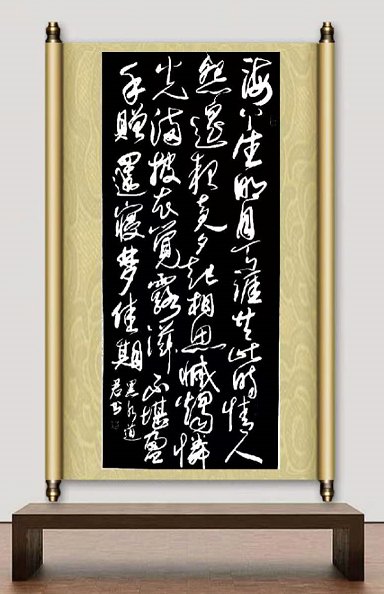 海上生明月天涯共此時情人
怨遙夜竟夕起相思滅燭憐
光滿披衣覺露滋不堪盈
手贈還寢夢佳期
黑水道
君书